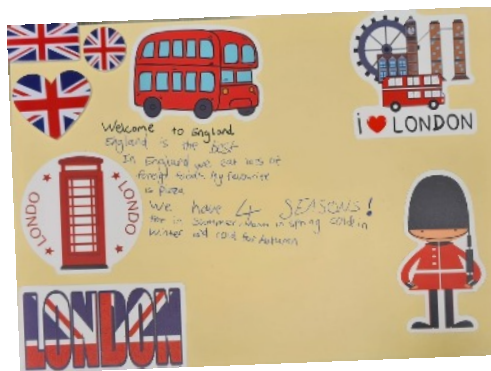 i LONDON
Welcome to England
England is the best
In England we eat lots of
foreign foods. My favourite
is Pizza
We have 4 SEASONS!
Hot in summer, warm in spring cold in
Winter and cold for Autumn
LONDO
LONDO
LONDON